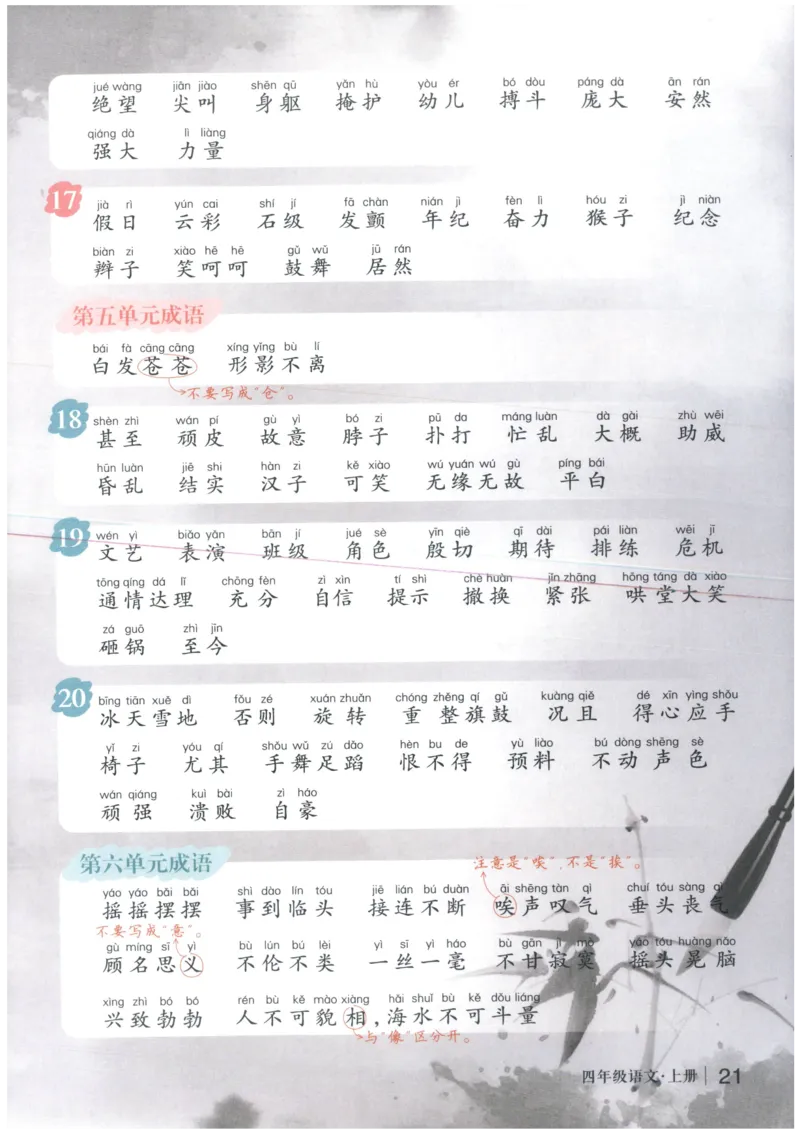 jué wàng jiān jiào shēn qū yǎn hù yòu ér bó dòu páng dà ān rán
绝望 尖叫 身躯 掩护 幼儿 搏斗 庞大 安然
qiáng dà lì liàng
强大 力量
17
jià rì yún cai shí jí fā chàn nián jì fèn lì hóu zi jì niàn
假日 云彩 石级 发颤 年纪 奋力 猴子 纪念
biàn zi xiào hē hē gǔ wǔ jū rán
辫子 笑呵呵 鼓舞 居然
第五单元成语
bái fà cāng cāng xíng yǐng bù lí
白发苍苍 形影不离
不要写成“仓”。
18
shèn zhì wán pí gù yì bó zi pū da máng luàn dà gài zhù wēi
甚至 顽皮 故意 脖子 扑打 忙乱 大概 助威
hūn luàn jiē shi hàn zi kě xiào wú yuán wú gù píng bái
昏乱 结实 汉子 可笑 无缘无故 平白
19
wén yì biǎo yǎn bān jí jué sè yīn qiè qī dài pái liàn wēi jī
文艺 表演 班级 角色 殷切 期待 排练 危机
tōng qíng dá lǐ chōng fèn zì xìn tí shì chè huàn jǐn zhāng hōng táng dà xiào
通情达理 充分 自信 提示 撤换 紧张 哄堂大笑
zá guō zhì jīn
砸锅 至今
20
bīng tiān xuě dì fǒu zé xuán zhuǎn chóng zhěng qí gǔ kuàng qiě dé xīn yìng shǒu
冰天雪地 否则 旋转 重整旗鼓 况且 得心应手
yǐ zi yóu qí shǒu wǔ zú dǎo hèn bu de yù liào bú dòng shēng sè
椅子 尤其 手舞足蹈 恨不得 预料 不动声色
wán qiáng kuì bài zì háo
顽强 溃败 自豪
第六单元成语
注意是“唉”，不是“挨”。
yáo yáo bǎi bǎi shì dào lín tóu jiē lián bú duàn āi shēng tàn qì chuí tóu sàng qì
摇摇摆摆 事到临头 接连不断 唉声叹气 垂头丧气
不要写成“意”。
gù míng sī yì bù lún bú lèi yì sī yì háo bù gān jì mò yáo tóu huàng nǎo
顾名思义 不伦不类 一丝一毫 不甘寂寞 摇头晃脑
xìng zhì bó bó rén bù kě mào xiàng hǎi shuǐ bù kě dǒu liáng
兴致勃勃 人不可貌相，海水不可斗量
与“像”区分开。
四年级语文·上册 21